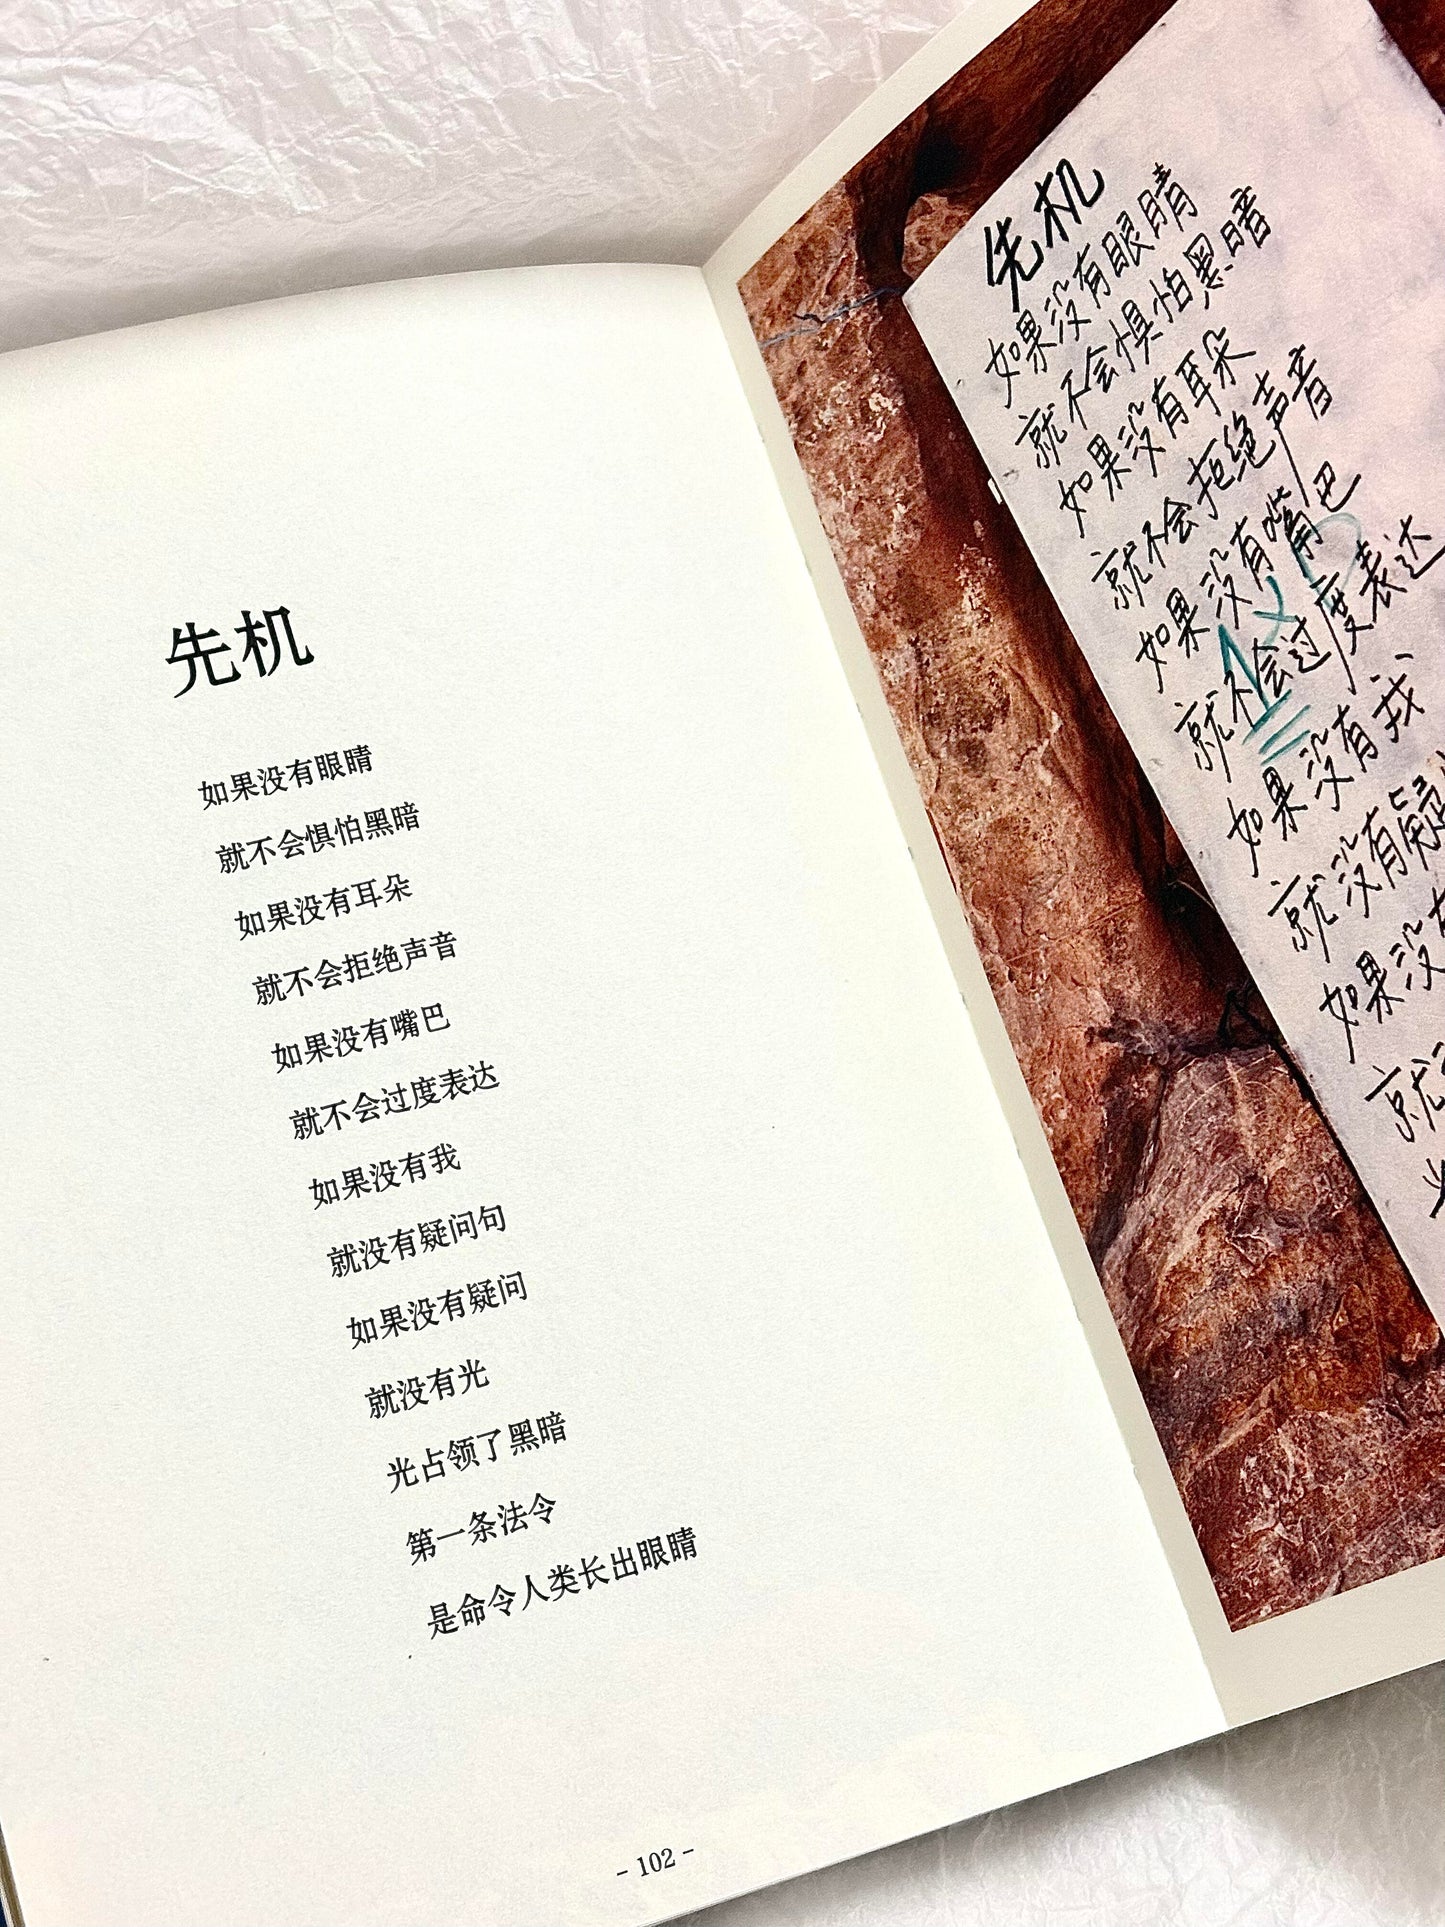 先机
如果没有眼睛
就不会惧怕黑暗
如果没有耳朵
就不会拒绝声音
如果没有嘴巴
就不会过度表达
如果没有我
就没有疑问句
如果没有疑问
就没有光
光占领了黑暗
第一条法令
是命令人类长出眼睛
- 102 -
先机
如果没有眼睛
就不会惧怕黑暗
如果没有耳朵
就不会拒绝声音
如果没有嘴巴
就不会过度表达
如果没有我
就没有疑
如果没有
就